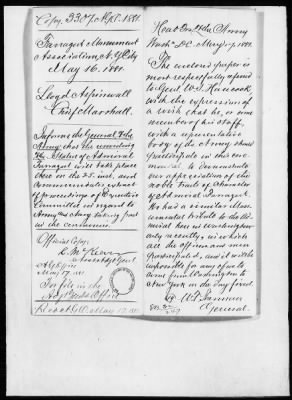 Copy, 3307, A.G.O. 1881
Farragut Monument
Association, N.Y. City
May 16. 1881.
Lloyd Aspinwall
Chief Marshall.
Informs the General of the
Army that the unveiling
of the Statue of Admiral
Farragut will take place
there on the 25. inst. and
communicates extract
of proceedings of Executive
Committee in regard to
Army and Navy taking part
in the ceremonies.
Official Copy:
A.G. Office
May 17. 81
To file in the
Adjt. Genl's Office
Recd A.G.O. May 17. 81
Head Qrs of the Army
Wash. D.C. May 17, 1881.
The enclosed paper is
most respectfully referred
to Genl W.S. Hancock
with the expression of
a wish that he, or some
member of his staff,
with a representative
body of the Army should
participate in this cere-
monial to demonstrate
our appreciation of the
noble traits of Character
of Admiral Farragut.
We had a similar Mon-
umental tribute to the Ad-
miral here in Washington
only recently, in which
all the Officers and men
participated, and it will be
impossible for any of us to
come from Washington to
New York on the day fixed.
W.T. Sherman
General.